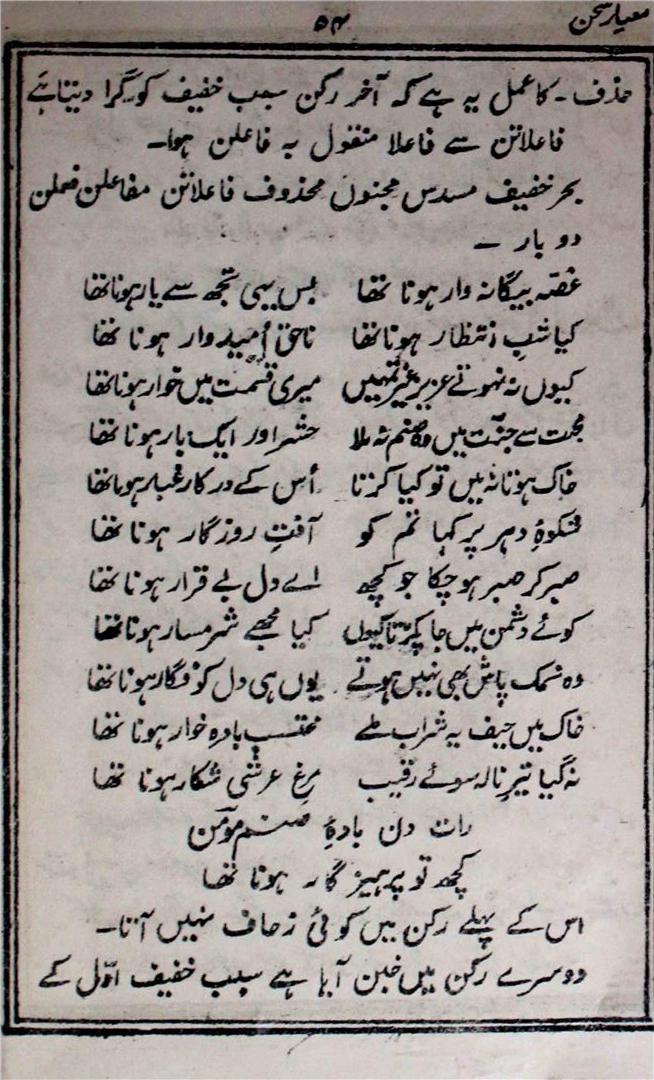 معیار سخن
۵۴
حذف۔ کا عمل یہ ہے کہ آخر رکن سبب خفیف کو گرا دیتا ہے
فاعلاتن سے فاعلا منقول بہ فاعلن ہوا۔
بحر خفیف مسدس مجنوں محذوف فاعلاتن مفاعلن فعلن
دو بار ۔
غصّہ بیگانہ وار ہونا تھا بس یہی تجھ سے یار ہونا تھا
کیا شبِ انتظار ہونا تھا ناحق اُمیدوار ہونا تھا
کیوں نہ ہوتے عزیز غیر تمہیں میری قسمت میں خوار ہونا تھا
مجھ سے جنّت میں وہ صنم نہ ملا حشر اور ایک بار ہونا تھا
خاک ہوتا نہ میں تو کیا کرتا اُس کے در کا غبار ہونا تھا
شکوۂ دہر پر کہا تم کو آفتِ روزگار ہونا تھا
صبر کر صبر ہو چکا جو کچھ اے دل بے قرار ہونا تھا
کوئے دشمن میں جا پکڑتا کیوں کیا مجھے شرمسار ہونا تھا
وہ نمک پاش بھی نہیں ہوتے یوں ہی دل کو فگار ہونا تھا
خاک میں حیف یہ شراب ملے محتسب بادہ خوار ہونا تھا
نہ گیا تیر نالہ سوئے رقیب مرغِ عرشی شکار ہونا تھا
رات دن بادۂ صنم مومن
کچھ تو پرہیز گار ہونا تھا
اس کے پہلے رکن میں کوئی زحاف نہیں آتا۔
دوسرے رکن میں خبن آیا ہے سبب خفیف اوّل کے